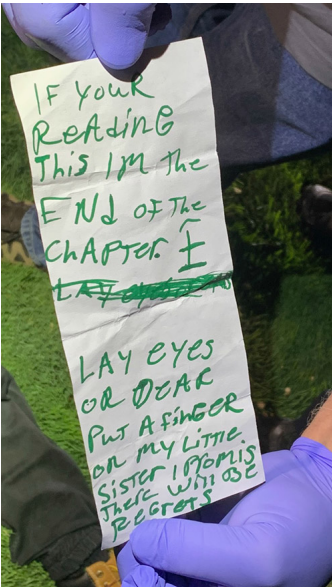 IF YOUR
READING
THIS IM THE
END OF THE
CHAPTER. I
LAY
LAY EYES
OR DEAR
PUT A FINGER
ON MY LITTLE
SISTER I PROMIS
THERE WILL BE
REGRETS